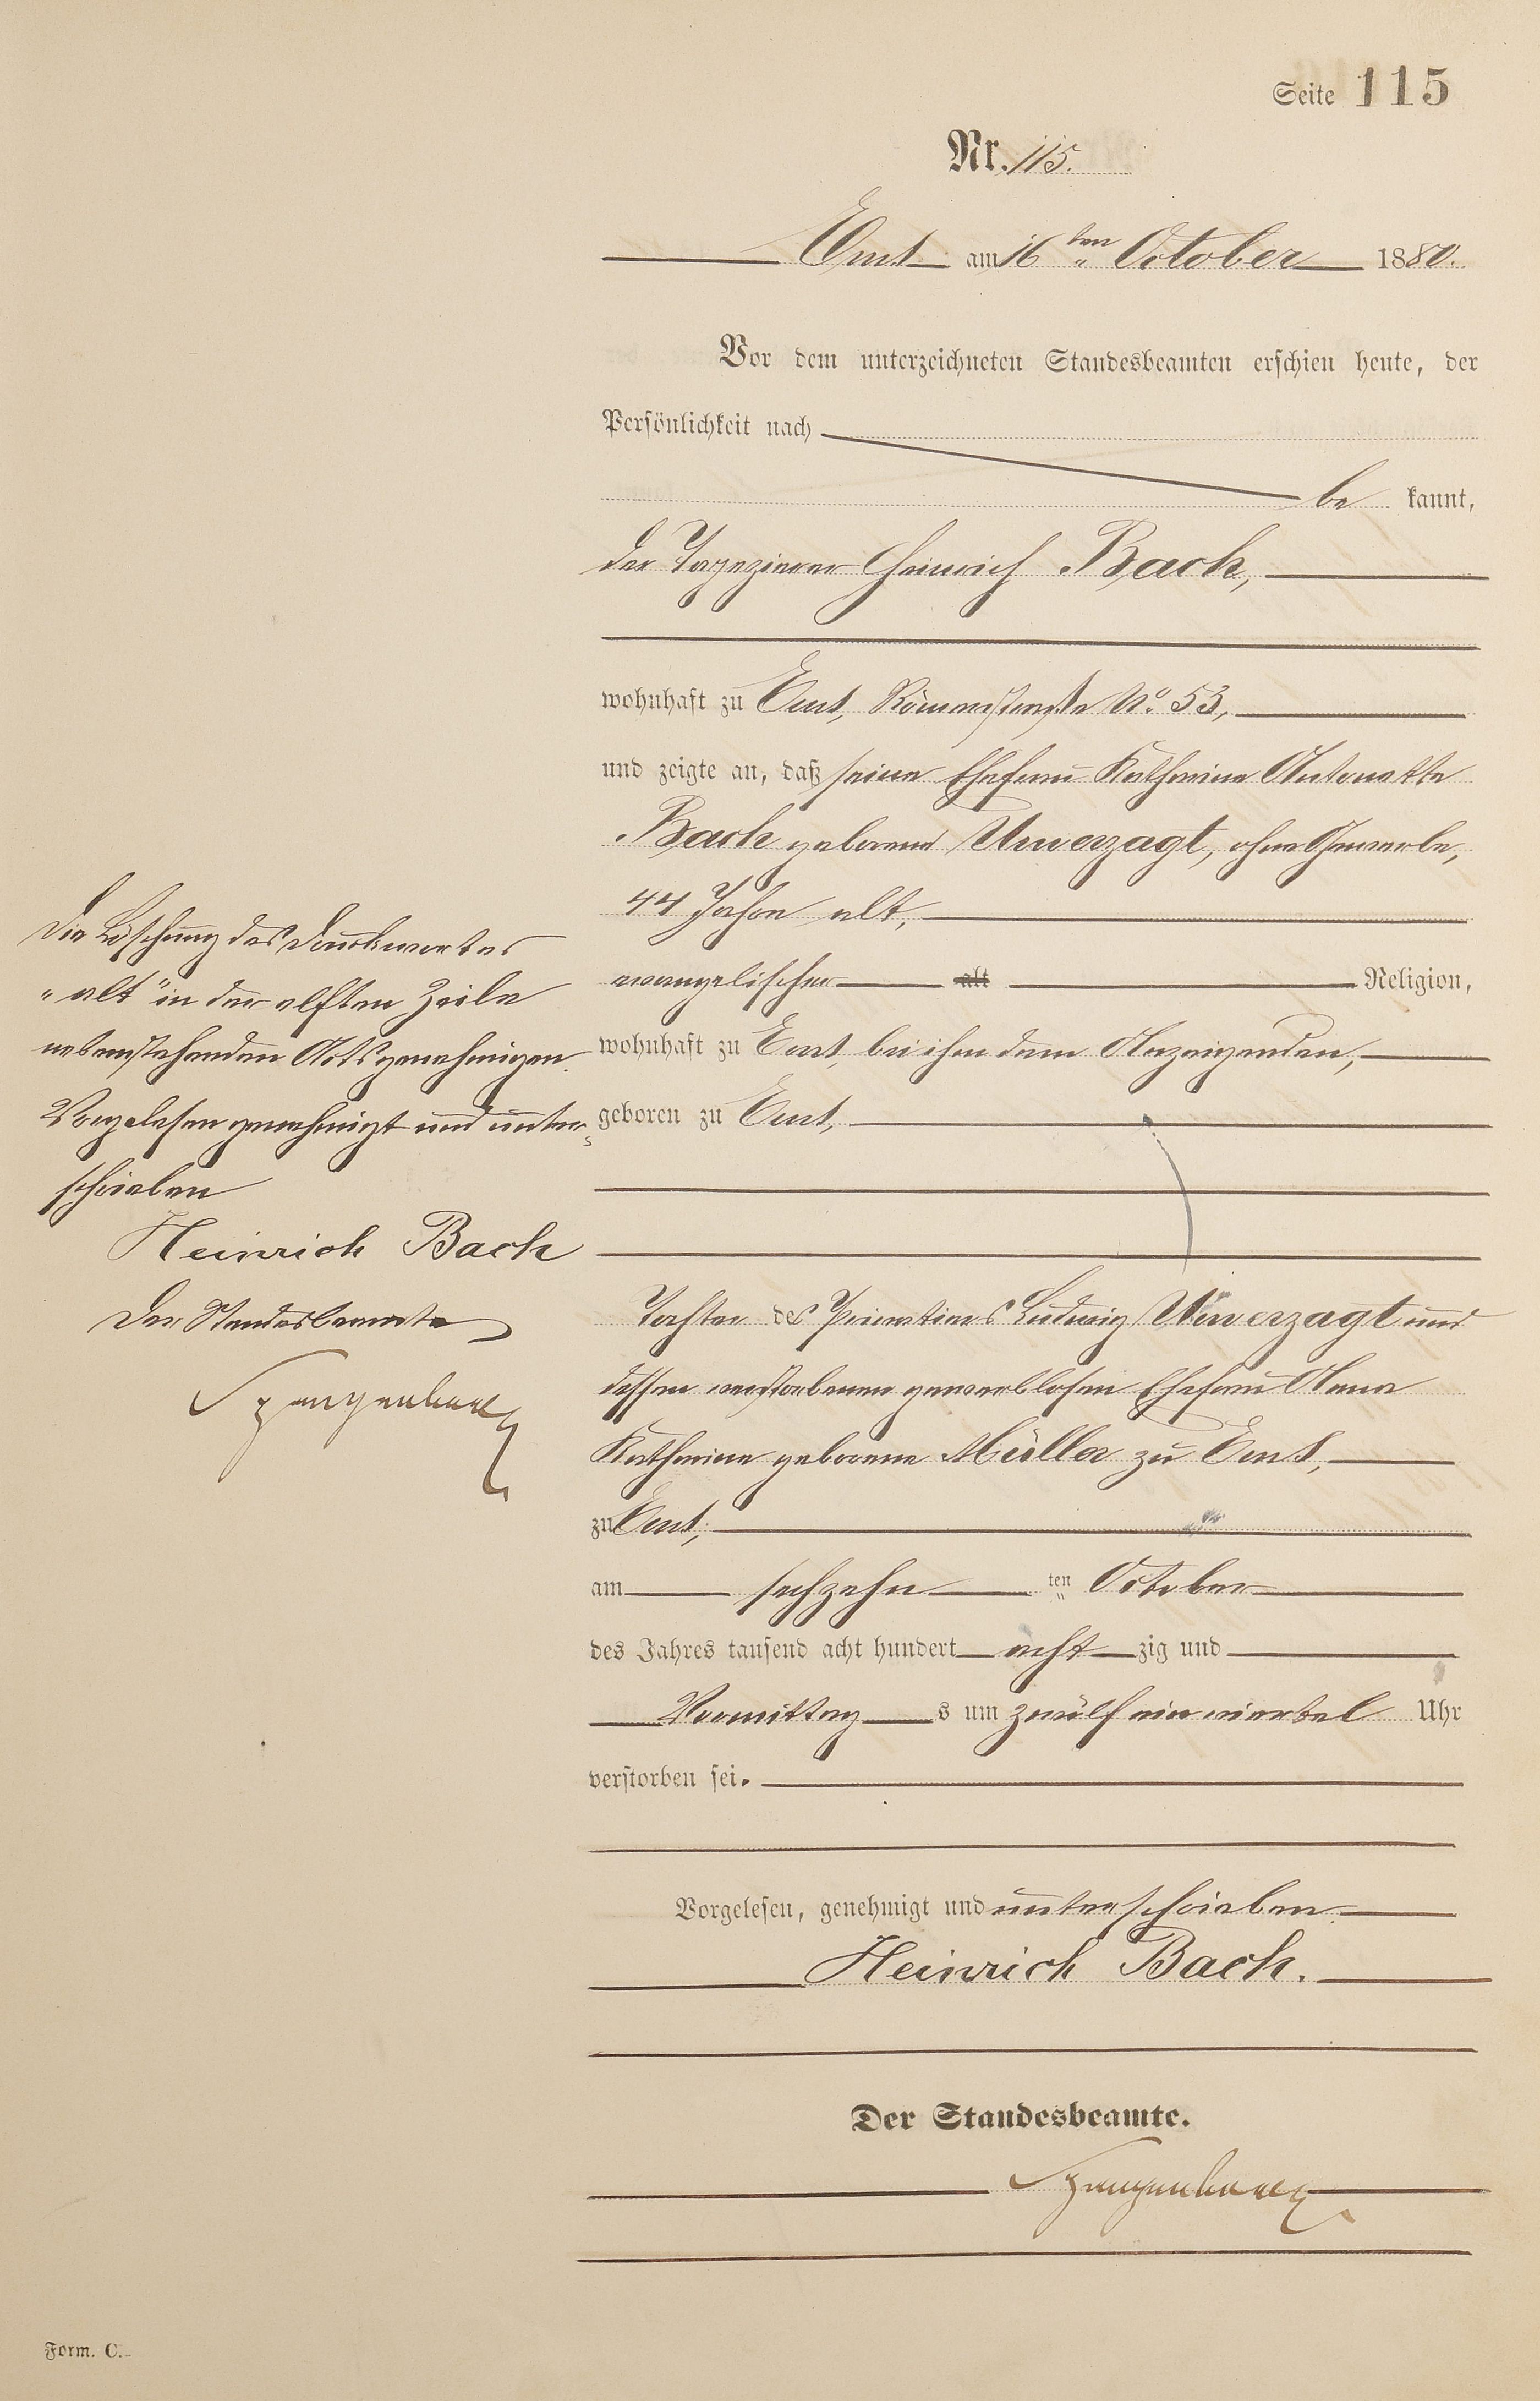 Seite 115
Nr. 115.
Ems am 16ten October 1880.
Vor dem unterzeichneten Standesbeamten erschien heute, der
Persönlichkeit nach
be kannt,
der Tapezierer Heinrich Bach,
wohnhaft zu Ems, Römerstraße No. 53,
und zeigte an, daß seine Ehefrau Katharine Antonette
Bach geborene Unverzagt, ohne Gewerbe,
44 Jahre alt,
evangelischer alt Religion,
wohnhaft zu Ems, bei ihm dem Anzeigenden,
geboren zu Ems,
Tochter des Privatiers Ludwig Unverzagt und
dessen verstorbenen gewerblosen Ehefrau Anna
Katharine geborene Müller zu Ems,
zu Ems,
am sechzehn ten October
des Jahres tausend acht hundert acht zig und
Vormittag s um zwölf ein viertel Uhr
verstorben sei.
Vorgelesen, genehmigt und unterschrieben
Heinrich Bach.
Der Standesbeamte.
Spangenberg
Die Löschung des Druckwortes
"alt" in der elften Zeile
nebenstehenden Acts genehmigen.
Vorgelesen genehmigt und unter-
schrieben
Heinrich Bach
Der Standesbeamte
Spangenberg
Form. C.